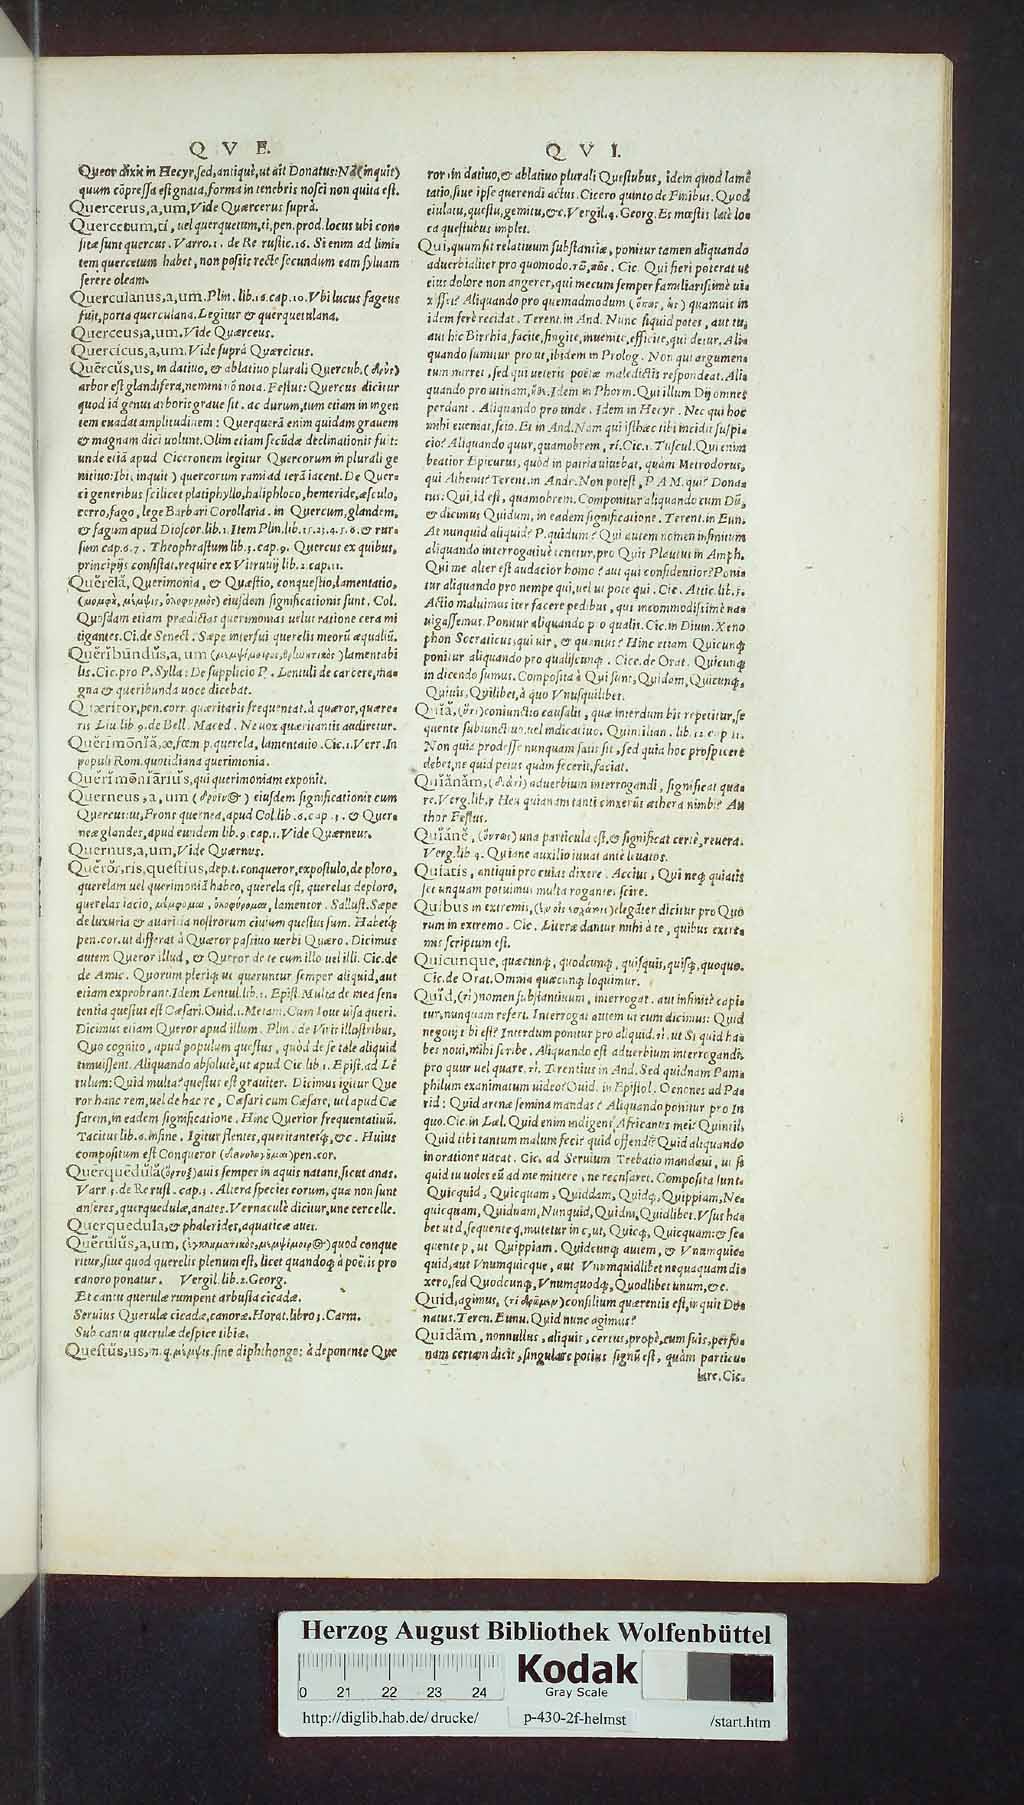 Q V E.
Queor dixit in Hecyr, sed, antiquè, ut ait Donatus: Nã (inquit)
quum cõpressa est gnata, forma in tenebris nosci non quita est.
Quercerus, a, um, Vide Quærcerus suprà.
Quercetum, ti, uel querquetum, ti, pen. prod. locus ubi con=
sitæ sunt quercus. Varro. 1. de Re rustic. 16. Si enim ad limi=
tem quercetum habet, non possis recte secundum eam syluam
serere oleam.
Querculanus, a, um. Plin. lib. 16. cap. 10. Vbi lucus fageus
fuit, porta querculana. Legitur & querquetulana.
Querceus, a, um. Vide Quærceus.
Quercicus, a, um. Vide suprà Quærcicus.
Quercus, us, in datiuo, & ablatiuo plurali Quercub. (δρῦς)
arbor est glandifera, nemini nõ nota. Festus: Quercus dicitur
quod id genus arboris graue sit. ac durum, tum etiam in ingen
tem euadat amplitudinem: Querquerã enim quidam grauem
& magnam dici uolunt. Olim etiam secũdæ declinationis fuit:
unde etiã apud Ciceronem legitur Quercorum in plurali ge
nitiuo: Ibi (inquit) quercorum rami ad terã iacent. De Quer=
ci generibus scilicet platiphyllo, haliphloeo, hemeride, æsculo,
cerro, fago, lege Barbari Corollaria. in Quercum, glandem,
& fagum apud Dioscor. lib. 1. Item Plin. lib. 15. 23. 4. 5. 8. & rur=
sum cap. 6. 7. Theophrastum lib. 3. cap. 9. Quercus ex quibus,
principijs consistat, require ex Vitruuij lib. 2. cap. 11.
Querelà, Querimonia, & Quæstio, conquestio, lamentatio,
(μομφὴ, μέμψις, ὀλοφυρμὸς) eiusdem significationis sunt. Col.
Quosdam etiam prædictas querimonias uelut ratione cera mi
tigantes. Ci. de Senect. Sæpe interfui querelis meorũ æqualiũ.
Queribundus, a, um lamentabi
lis. Cic. pro P. Sylla: De supplicio P. Lentuli de carcere, ma=
gna & queribunda uoce dicebat.
Quæritor, pen. corr. quæritaris frequentat. à quæror, quære=
ris Liu lib 9. de Bell. Maced. Ne uox quæritantis audiretur.
Querimonia, æ, fœm p. querela, lamentatio. Cic. 1. Verr. In
populi Rom. quotidiana querimonia.
Querimoniarius, qui querimoniam exponit.
Querneus, a, um eiusdem significationis cum
Quercus: ut, Frons quernea, apud Col. lib. 6. cap. 3. & Quer=
neæ glandes, apud eundem lib. 9. cap. 1. Vide Quærneus.
Quernus, a, um, Vide Quærnus.
Queror, ris, questius, dep. t. conqueror, expostulo, de ploro,
querelam uel querimoniã habeo, querela est, querelas deploro,
querelas iacio, μέμφομαι, ὀλοφύρομαι, lamentor. Sallust. Sæpe
de luxuria & auaritia nostrorum ciuium questus sum. Habetq́;
pen. cor. ut differat à Quæror passiuo uerbi Quæro. Dicimus
autem Queror illud, & Queror de te cum illo uel illi. Cic. de
de Amic. Quorum pleriq; ut queruntur semper aliquid, aut
etiam exprobrant. Idem Lentul. lib. 1. Epist. Multa de mea sen=
tentia questus est Cæsari. Ouid. 1. Metam. Cum Ioue uisa queri.
Dicimus etiam Queror apud illum. Plin. de Viris illustribus,
Quo cognito, apud populum questus, quòd de se tale aliquid
timuissent. Aliquando absolutè, ut apud Cic. lib. 1. Epist. ad Lẽ
tulum: Quid multa? questus est grauiter. Dicimus igitur Que
ror hanc rem, uel de hac re, Cæsari cum Cæsare, uel apud Cæ
sarem, in eadem significatione. Hinc Querior frequentatiuũ.
Tacitus lib. 6. in fine. Igitur flentes, queritantesq́;, &c. Huius
compositum est Conqueror pen. cor.
Querquedula auis semper in aquis natans, sicut anas.
Varr 3. de Re rust. cap. 3. Altera species eorum, qua non sunt
anseres, querquedulæ, anates. Vernaculè dicitur, une cercelle.
Querquedula, & phalerides, aquaticæ aues.
Querulus, a, um, quod conque
ritur, siue quod querelis plenum est, licet quandoq; à poëtis pro
canoro ponatur. Vergil. lib. 2. Georg.
Et cantu querulæ rumpent arbusta cicadæ.
Seruius Querulæ cicadæ, canoræ. Horat. libro 3. Carm.
Sub cantu querulæ despice tibiæ.
Questus, us, n. q. μέμψις. sine diphthongo: à deponente Que
Q V I.
ror, in datiuo, & ablatiuo plurali Questubus, idem quod lamẽ
tatio, siue ipse querendi actus. Cicero quinto de Finibus. Quod
eiulatu, questu, gemitu, &c. Vergil. 4. Georg. Es mœstis latè lo=
ca questubus implet.
Qui, quum sit relatiuum substantiæ, ponitur tamen aliquando
aduerbialiter pro quomodo. Cic. Qui fieri poterat ut
eius dolore non angerer, qui mecum semper familiarissimè ui=
xisset? Aliquando pro quemadmodum (ὅπως, ὡς) quamuis in
idem ferè recidat. Terent. in And. Nunc siquid potes, aut tu,
aut hic Birrhia, facite, fingite, inuenite, efficite, qui detur. Ali=
quando sumitur pro ut, ibidem in Prolog. Non qui argumen=
tum narret, sed qui ueteris poëtæ maledictis respondeat. Ali=
quando pro utinam, Idem in Phorm. Qui illum Dij omnes
perdant. Aliquando pro unde. Idem in Hecyr. Nec qui hoc
mihi eueniat, scio. Et in And. Nam qui isthæc tibi incidit suspi=
cio? Aliquando quur, quamobrem, τί. Cic. 1. Tuscul. Qui enim
beatior Epicurus, quòd in patria uiuebat, quàm Metrodorus,
qui Athenis? Terent. in Andr. Non potest, P A M. qui? Dona=
tus: Qui, id est, quamobrem. Componitur aliquando cum Dũ,
& dicimus Quidum, in eadem significatione. Terent. in Eun.
At nunquid aliquid? P. quidum? Qui autem nomen infinitum
aliquando interrogatiuè tenetur, pro Quis Plautus in Amph.
Qui me alter est audacior homo? aut qui confidentior? Poni=
tur aliquando pro nempe qui, uel ut pote qui. Cic. Attic. lib. 8.
Actio maluimus iter facere pedibus, qui incommodissimè na=
uigassemus. Ponitur aliquando pro qualis. Cic. in Diuin. Xeno
phon Socraticus, qui uir, & quantus? Hinc etiam Quicunq;
ponitur aliquando pro qualiscunq;. Cice. de Orat. Quicunq;
in dicendo sumus. Composita à Qui sunt, Quidam, Quicunq;,
Quiuis, Quilibet, à quo Vnusquilibet.
Quia, (ὅτι) coniunctio causalis, quæ interdum bis repetitur, se
quente subiunctiuo, uel indicatiuo. Quintilian. lib. 12 cap 11.
Non quia prodesse nunquam satis sit, sed quia hoc prospicere
debet, ne quid peius quàm fecerit, faciat.
Quianam, aduerbium interrogandi, significat qua=
re. Verg. lib. 5 Heu quianam tanti cinxerũt æthera nimbi? Au
thor Festus.
Quiane, (ὄντως) una particula est, & significat certè, reuera.
Verg. lib 4. Quiane auxilio iuuat antè leuatos.
Quiatis, antiqui pro cuias dixere. Accius, Qui neq; quiatis
set unquam potuimus multa rogantes scire.
Quibus in extremis, elegãter dicitur pro Quo
rum in extremo. Cic. Literæ dantur mihi à te, quibus extre=
mis scriptum est.
Quicunque, quæcunq;, quodcunq;, quisquis, quisq;, quoquo.
Cic. de Orat. Omnia quæcunq; loquimur.
Quid, (τί) nomen substantiuum, interrogat. aut infinitè capi=
tur, nunquam refert. Interrogat autem ut cum dicimus: Quid
negotij tibi est? Interdum ponitur pro aliquid. τί. ut Si quid ha=
bes noui, mihi scribe. Aliquando est aduerbium interrogandi,
pro quur uel quare. τί. Terentius in And. Sed quidnam Pam=
philum exanimatum uideo? Ouid. in Epistol. Oenones ad Pa=
rid: Quid arenæ semina mandas? Aliquando ponitur pro In
quo. Cic. in Læl. Quid enim indigens Africanus mei? Quintil,
Quid tibi tantum malum feci? quid offendi? Quid aliquando
in oratione uacat. Cic. ad Seruium Trebatio mandaui, ut si
quid tu uoles eũ ad me mittere, ne recusaret. Composita sunt.
Quicquid, Quicquam, Quiddam, Quidq;, Quippiam, Ne=
quicquam, Quiduam, Nunquid, Quidni, Quidlibet. Vsus ha=
bet ut d, sequente q, mutetur in c, ut, Quicq;, Quicquam: & se=
quente p, ut Quippiam. Quidcunq; autem, & Vnumquic=
quid, aut Vnumquicque, aut Vnumquidlibet nequaquam di=
xero, sed Quodcunq;, Vnumquodq;, Quodlibet unum, &c.
Quid, agimus, (τί δρῶμεν) consilium quærentis est, inquit Do=
natus. Teren. Eunu. Quid nunc agimus?
Quidam, nonnullus, aliquis, certus, propè, cum suis, perso=
nam certam dicit, singulare potius signũ est, quàm particu=
lare. Cic.
Herzog August Bibliothek Wolfenbüttel
0 21 22 23 24
Kodak
Gray Scale
http://diglib.hab.de/drucke/ p-430-2f-helmst /start.htm